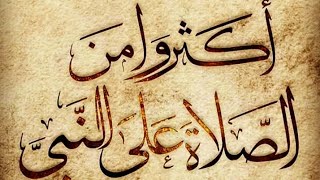 أكثروا من
الصلاة على النبي